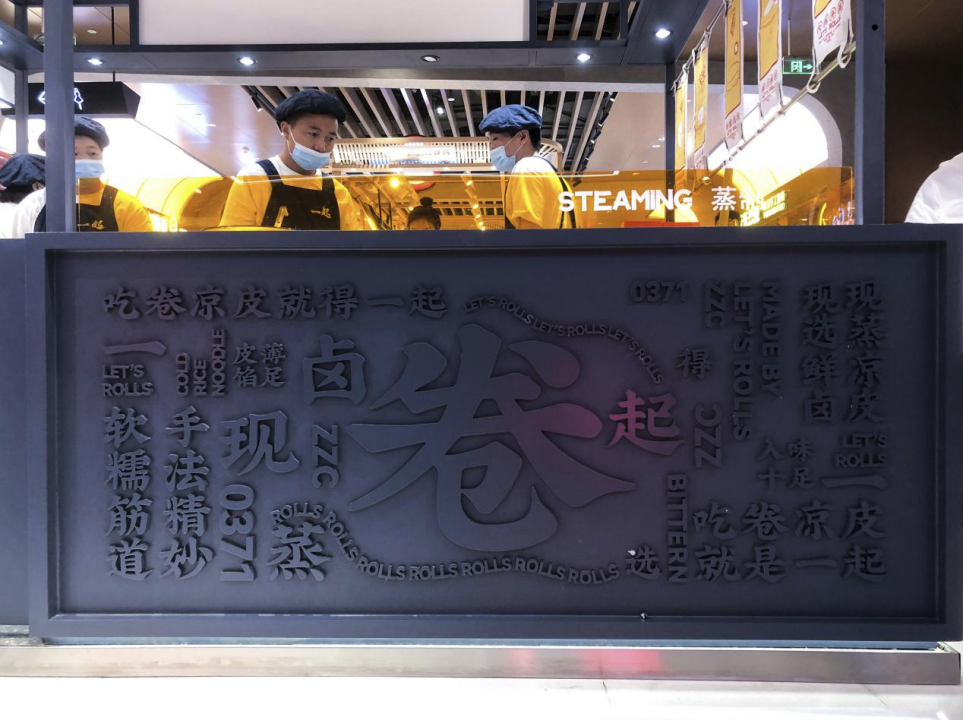 一起
一起
STEAMING 蒸
吃卷凉皮就得一起
LET'S ROLLS LET'S ROLLS LET'S ROLLS
0371
ZZC
LET'S ROLLS
MADE BY
现选鲜卤
现蒸凉皮
一
LET'S
ROLLS
COLD
RICE
NOODLE
皮薄
馅足
卤
卷
起
得
ZZC
入味
十足
LET'S
ROLLS
一
软糯筋道
手法精妙
现
0371
ZZC
蒸
ROLLS ROLLS ROLLS ROLLS ROLLS ROLLS ROLLS
选
BITTERN
吃卷凉皮
就是一起